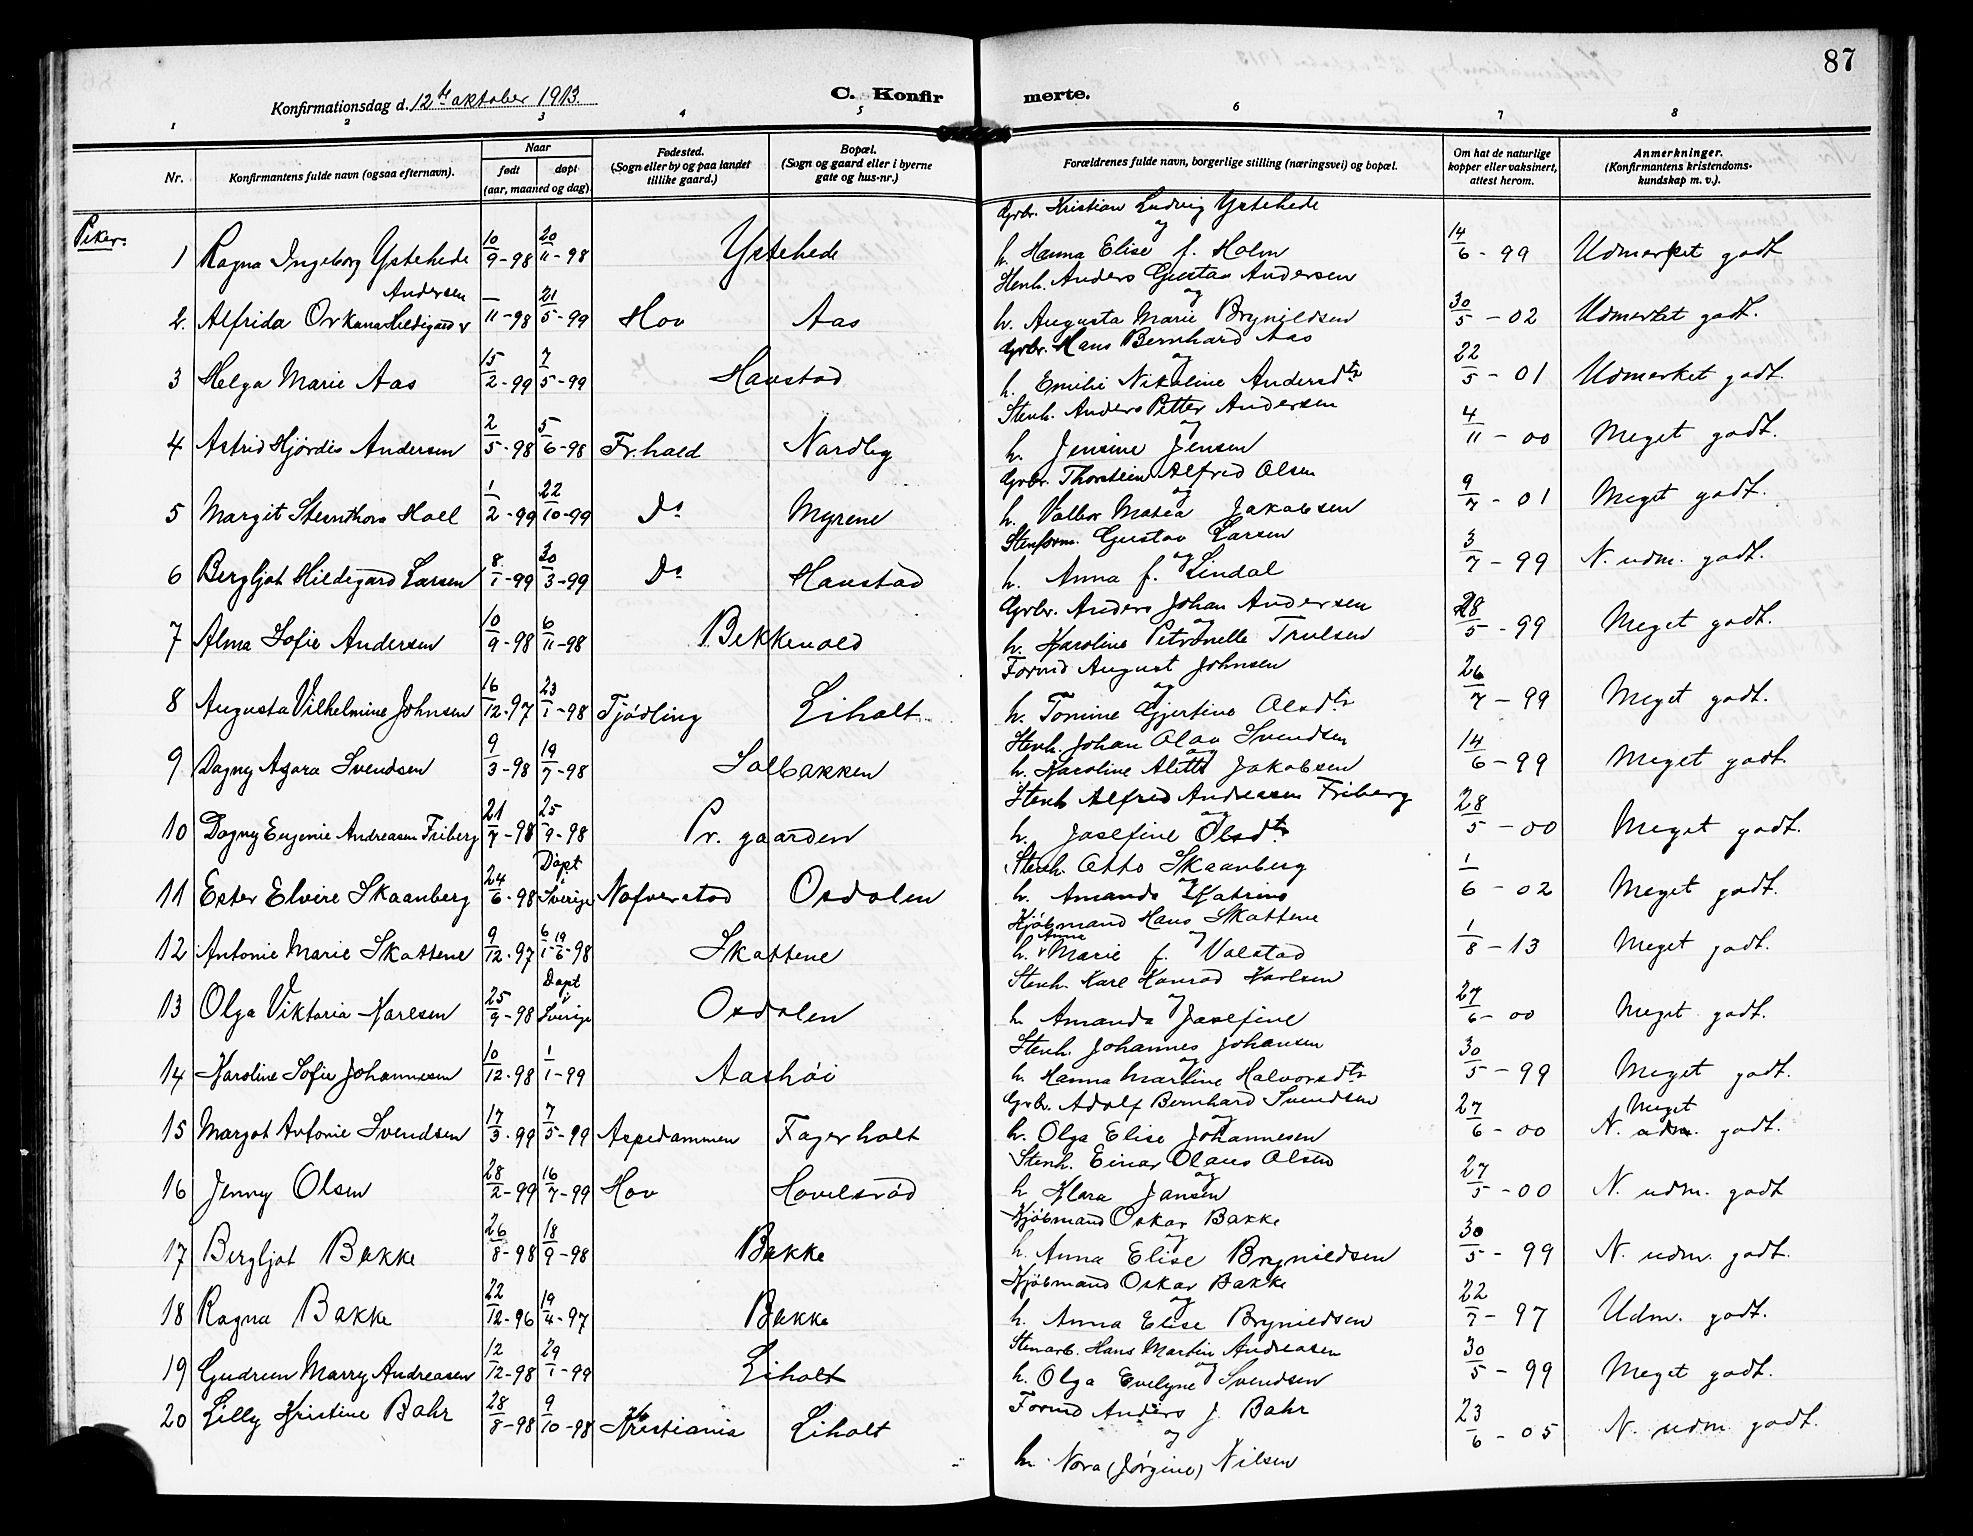 87
Konfirmationsdag d. 12te oktober 1913.
C. Konfirmerte.
1 2 3 4 5 6 7 8
Nr.
Konfirmantens fulde navn (ogsaa efternavn).
Naar
født
døpt
(aar, maaned og dag)
Fødested.
(Sogn eller by og paa landet
tillike gaard.)
Bopæl.
(Sogn og gaard eller i byerne
gate og hus-nr.)
Forældrenes fulde navn, borgerlige stilling (næringsvei) og bopæl.
Om hat de naturlige
kopper eller vaksinert,
attest herom.
Anmerkninger.
(Konfirmantens kristendoms-
kundskap m. v.).
Piker:
Grbr. Kristian Ludvig Ystehede
og
1 Ragna Ingeborg Ystehede 10/9-98 20/11-98 Ystehede h. Hanna Elise f. Holm 14/6-99 Udmerket godt
Andersen
Stenh. Anders Gustav Andersen
og
2. Alfrida Orkana Hildegard v —/11-98 21/5-99 Hov Aas h. Augusta Marie Brynildsen 30/5-02 Udmerket godt.
Grbr. Hans Bernhard Aas
og
3 Helga Marie Aas 15/2-99 7/5-99 Haustad h. Emilie Nikoline Andersdtr 22/5-01 Udmerket godt.
Stenh. Anders Petter Andersen
og
4 Astrid Hjördis Andersen 2/5-98 5/6-98 Fr.hald Nordby h. Jensine Jensen 4/11-00 Meget godt.
Grbr. Thorstein Alfred Olsen
og
5 Margit Steinthora Hoel 1/2-99 22/10-99 Do Myrene h. Valbor Matea Jakobsen 9/7-01 Meget godt.
Stenform. Gustav Larsen
og
6 Bergljot Hildegard Larsen 8/1-99 30/3-99 Do Haustad h. Anna f. Lindal 3/7-99 N. udm. godt.
Grbr. Anders Johan Andersen
og
7 Alma Sofie Andersen 10/9-98 6/11-98 Bekkevold h. Karoline Petronelle Trulsen 28/5-99 Meget godt.
Formd August Johnsen
og
8 Augusta Vilhelmine Johnsen 16/12-97 23/1-98 Tjödling Liholt h. Tomine Gjertine Olsdtr 26/7-99 Meget godt.
Stenh. Johan Olav Svendsen
og
9 Dagny Agara Svendsen 9/3-98 19/7-98 Solbakken h. Karoline Alette Jakobsen 14/6-99 Meget godt.
Stenh Alfred Andreasen Friberg
og
10 Dagny Eugenie Andreasen Friberg 21/7-98 25/9-98 Pr. gaarden h. Josefine Olsdtr 28/5-00 Meget godt.
Døpt
i
Stenh. Otto Skaanberg
og
11 Ester Elvire Skaanberg 24/6-98 Sverige Nafverstad Osdalen h. Amanda Katrine 1/6-02 Meget godt.
Kjöbmand Hans Skattene
Anna og
12 Antonie Marie Skattene 9/12-97 6/1-19/6-98 Skattene h. v Marie f. Volstad 1/8-13 Meget godt.
Døpt
i
Stenh. Karl Konrad Karlsen
og
13 Olga Viktoria Karlsen 25/9-98 Sverige Osdalen h. Amanda Josefine 27/6-00 Meget godt.
Stenh. Johannes Johansen
og
14 Karoline Sofie Johannesen 10/12-98 1/1-99 Aashöi h. Hanna Martine Halvorsdtr 30/5-99 Meget godt.
Grbr. Adolf Bernhard Svendsen
og
Meget
15 Margot Antonie Svendsen 17/3-99 7/5-99 Aspedammen Fagerholt h. Olga Elise Johannesen 27/6-00 N. udm. godt.
Stenh. Einar Olaus Olsen
og
16 Jenny Olsen 28/2-99 16/7-99 Hov Hovelsröd h Klara Jansen 27/5-00 N. udm. godt
Kjöbmand Oskar Bakke
og
17 Bergljot Bakke 26/8-98 18/9-98 Bakke h. Anna Elise Brynildsen 30/5-99 N. udm. godt.
Kjöbmand Oskar Bakke
og
18 Ragna Bakke 22/12-96 19/4-97 Bakke h. Anna Elise Brynildsen 22/7-97 Udm. godt.
Stenarb. Hans Martin Andreasen
og
19 Gudrun Marry Andreasen 12/12-98 29/1-99 Liholt h. Olga Evelyne Svendsen 30/5-99 Meget godt.
Formd Anders J. Bahr
og
20 Lilly Kristine Bahr 28/8-98 9/10-98 Kristiania Liholt h. Nora (Jörgine) Nilsen 23/6-05 N. udm godt.